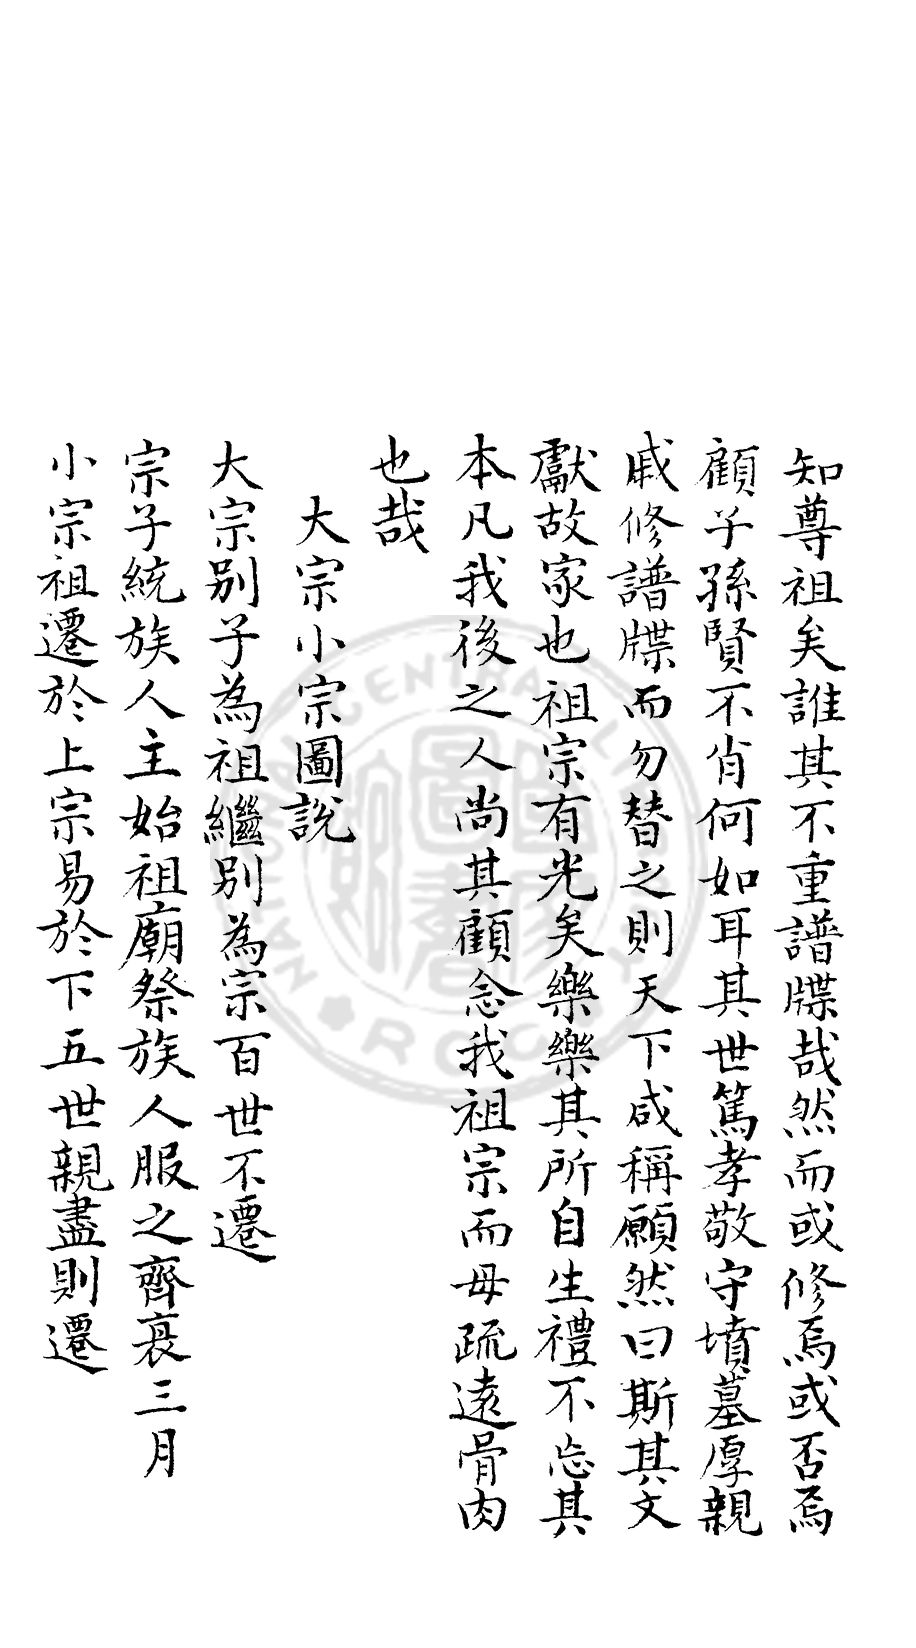 知尊祖矣誰其不重譜牒哉然而或修焉或否焉
顧子孫賢不肖何如耳其世篤孝敬守墳墓厚親
戚修譜牒而勿替之則天下咸稱願然曰斯其文
獻故家也祖宗有光矣樂樂其所自生禮不忘其
本凡我後之人尚其顧念我祖宗而毋疏遠骨肉
也哉
大宗小宗圖說
大宗別子為祖繼別為宗百世不遷
宗子統族人主始祖廟祭族人服之齊衰三月
小宗祖遷於上宗易於下五世親盡則遷